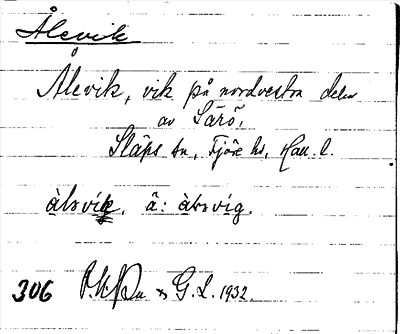 Ålevik
Ålevik, vik på nordvestra delen
av Särö,
Släps sn, Fjäre hd, Hall. l.
àlsvík, ā: àlsvig.
306 P.H. & G.L. 1932.